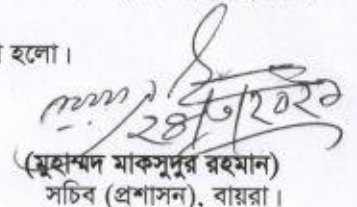 হলো।
২৪/৩/২০২১
(মুহাম্মদ মাকসুদুর রহমান)
সচিব (প্রশাসন), বায়রা।